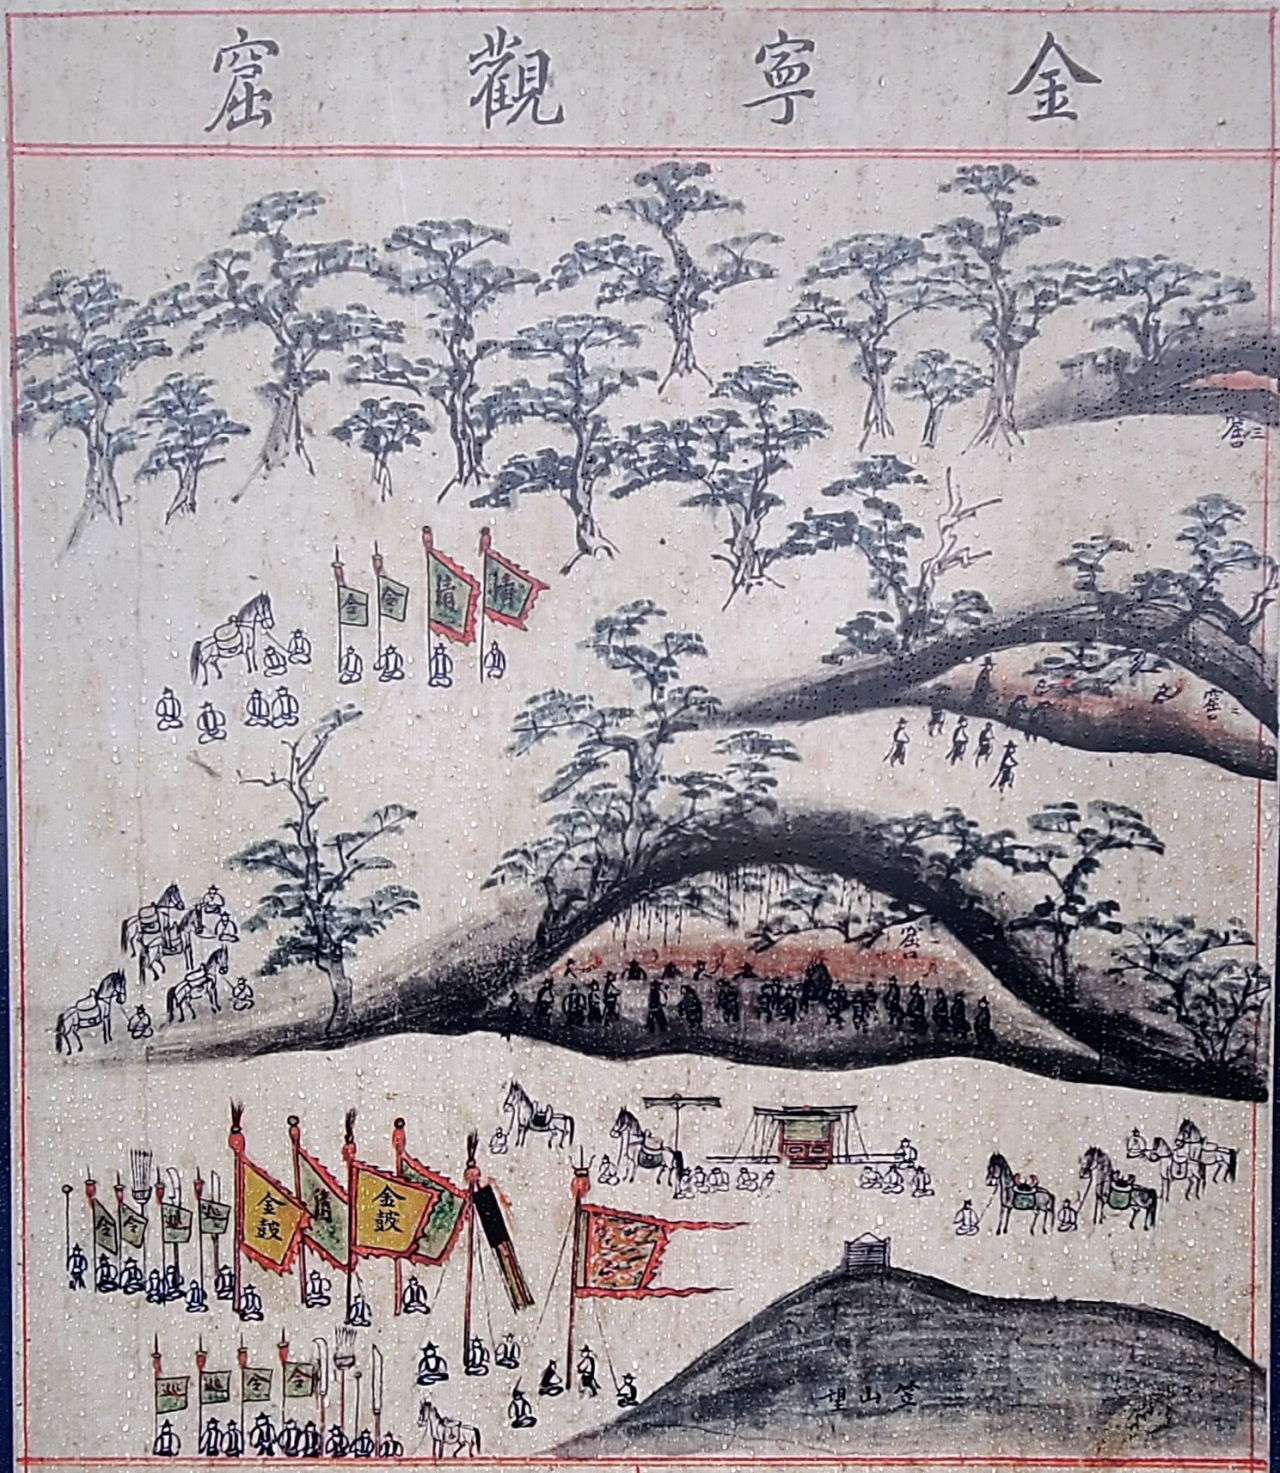 金寧觀窟
三窟口
二窟口
一窟口
令 令 清 清
令 令 巡 巡 金鼓 清 金鼓
巡 巡 令 令
笠山望